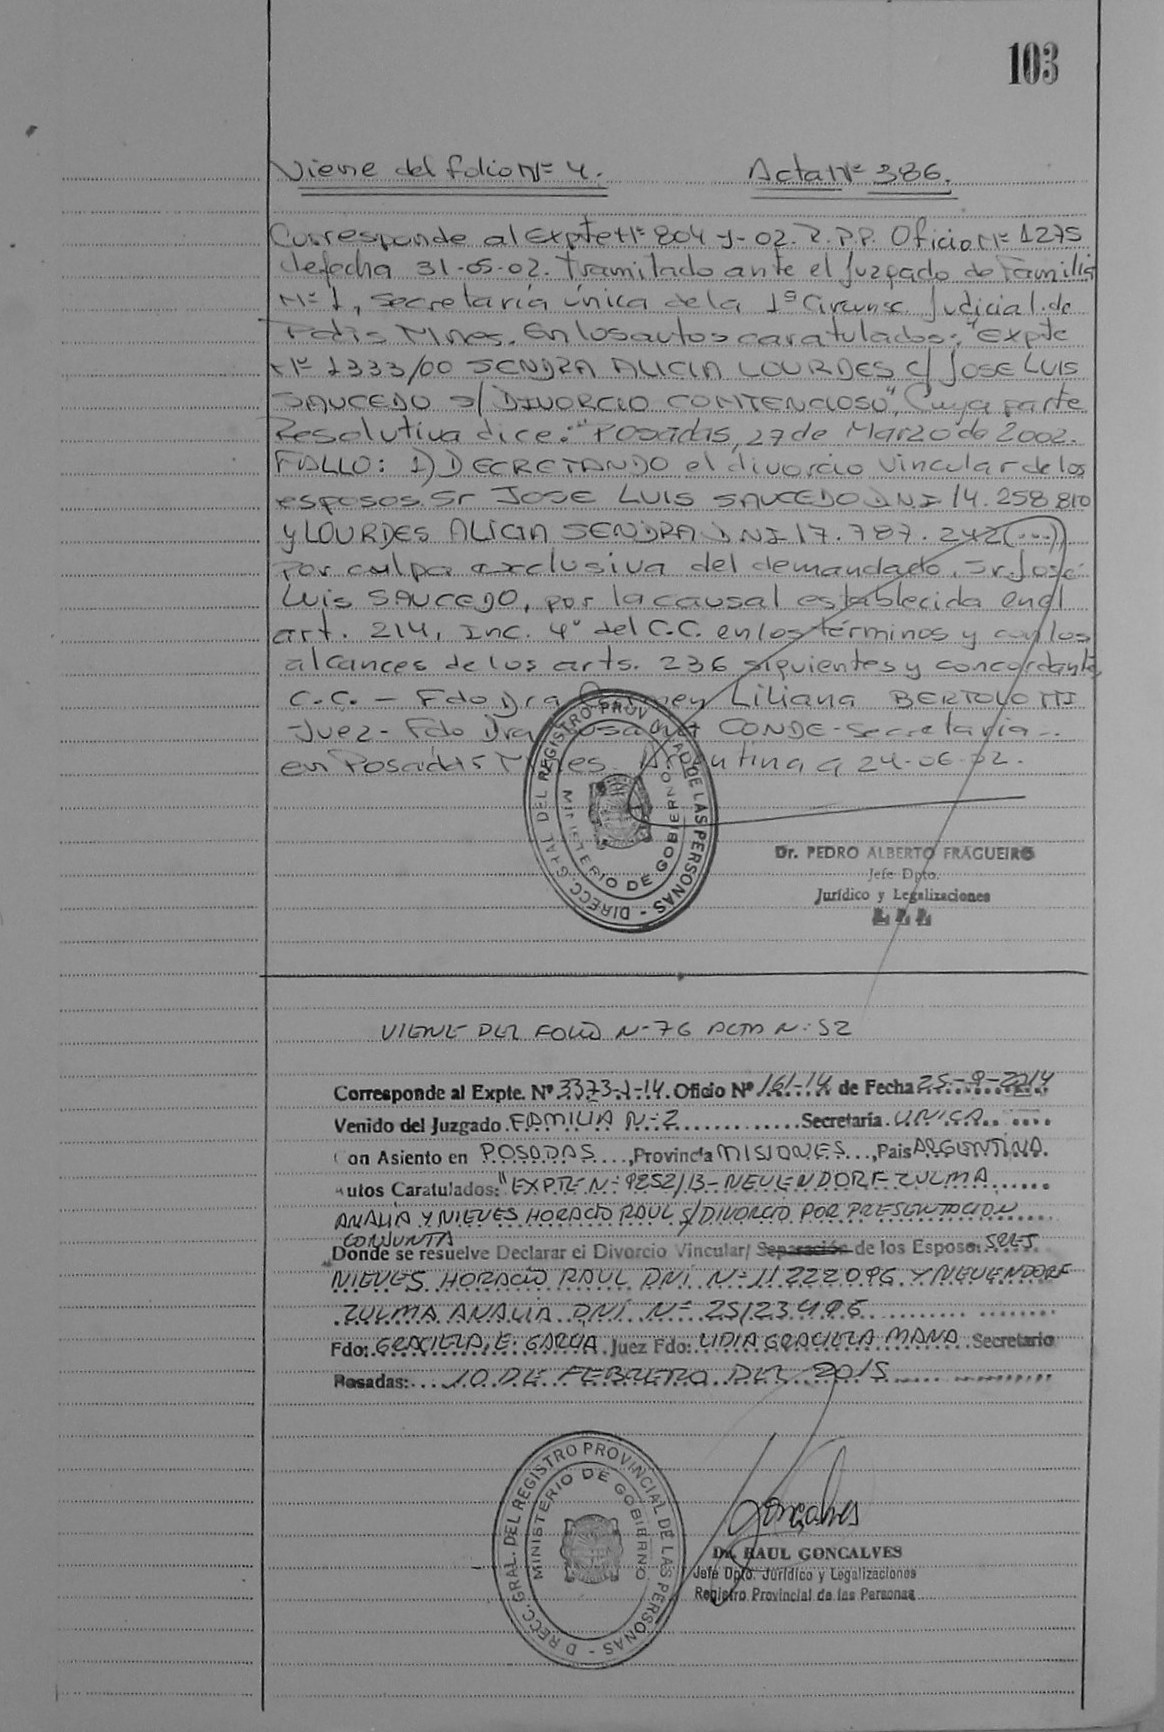 103
Viene del folio Nº 4. Acta Nº 386.
Corresponde al Expte Nº 804-J-02. R.P.P. Oficio Nº 1275
de fecha 31-05-02. Tramitado ante el Juzgado de Familia
Nº 1, Secretaría única de la 1ª Circunsc. Judicial de
Pdas Mnes. En los autos caratulados: "Expte
Nº 1333/00 SENDRA ALICIA LOURDES C/ JOSE LUIS
SAUCEDO S/ DIVORCIO CONTENCIOSO", Cuya parte
Resolutiva dice: "Posadas, 27 de Marzo de 2002.
FALLO: 1) DECRETANDO el divorcio vincular de los
esposos. Sr JOSE LUIS SAUCEDO D.N.I 14.258.810
y LOURDES ALICIA SENDRA D.N.I 17.787.242 (...)
por culpa exclusiva del demandado, Sr. José
Luis SAUCEDO, por la causal establecida en el
art. 214, Inc. 4º del C.C. en los términos y con los
alcances de los arts. 236 siguientes y concordante
C.C. - Fdo Dra Carmen Liliana BERTOLOTTI
Juez - Fdo Dra Rosanna CONDE - Secretaria -
en Posadas Mnes. Argentina a 24-06-02.
DIRECC. GRAL. DEL REGISTRO PROVINCIAL DE LAS PERSONAS -
MINISTERIO DE GOBIERNO
Dr. PEDRO ALBERTO FRAGUEIRO
Jefe Dpto.
Jurídico y Legalizaciones
VIENE DEL FOLIO N-76 ACTA N: 52
Corresponde al Expte. Nº 3373-J-14. Oficio Nº 161-14 de Fecha 25-9-2014
Venido del Juzgado FAMILIA N-2 Secretaría UNICA
Con Asiento en POSADAS, Provincia MISIONES, Pais ARGENTINA.
Autos Caratulados: "EXPTE N- 9252/13-NEUENDORF ZULMA
ANALIA Y NIEVES HORACIO RAUL S/DIVORCIO POR PRESENTACION
CONJUNTA
Donde se resuelve Declarar el Divorcio Vincular/ Separación de los Esposo: SRES
NIEVES HORACIO RAUL DNI N- 11 222 096 Y NEUENDORF
ZULMA ANALIA DNI N- 25123496
Fdo: GRACIELA E. GARCIA. Juez Fdo: LIDIA GRACIELA MANA Secretario
Posadas: 10 DE FEBRERO DEL 2015
DIRECC. GRAL. DEL REGISTRO PROVINCIAL DE LAS PERSONAS -
MINISTERIO DE GOBIERNO
Goncalves
Dr. RAUL GONCALVES
Jefe Dpto. Jurídico y Legalizaciones
Registro Provincial de las Personas